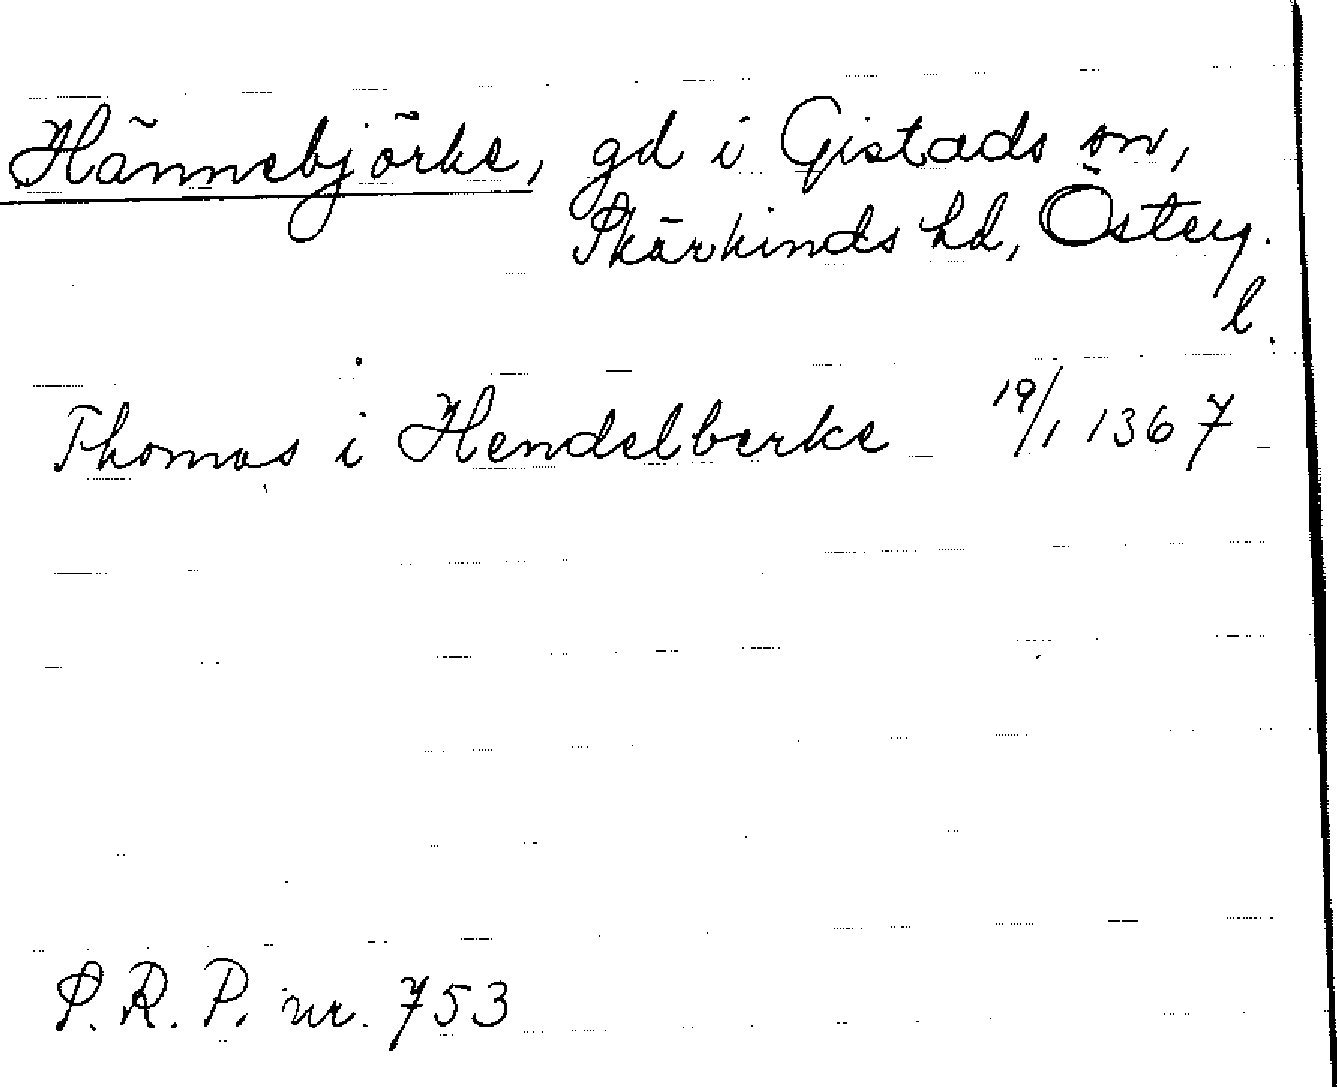 Hännebjörke, gd i Gistads sn,
Skärkinds hd, Österg.
l.
Thomas i Hendelberke 19/1 1367
S.R.P. nr. 753